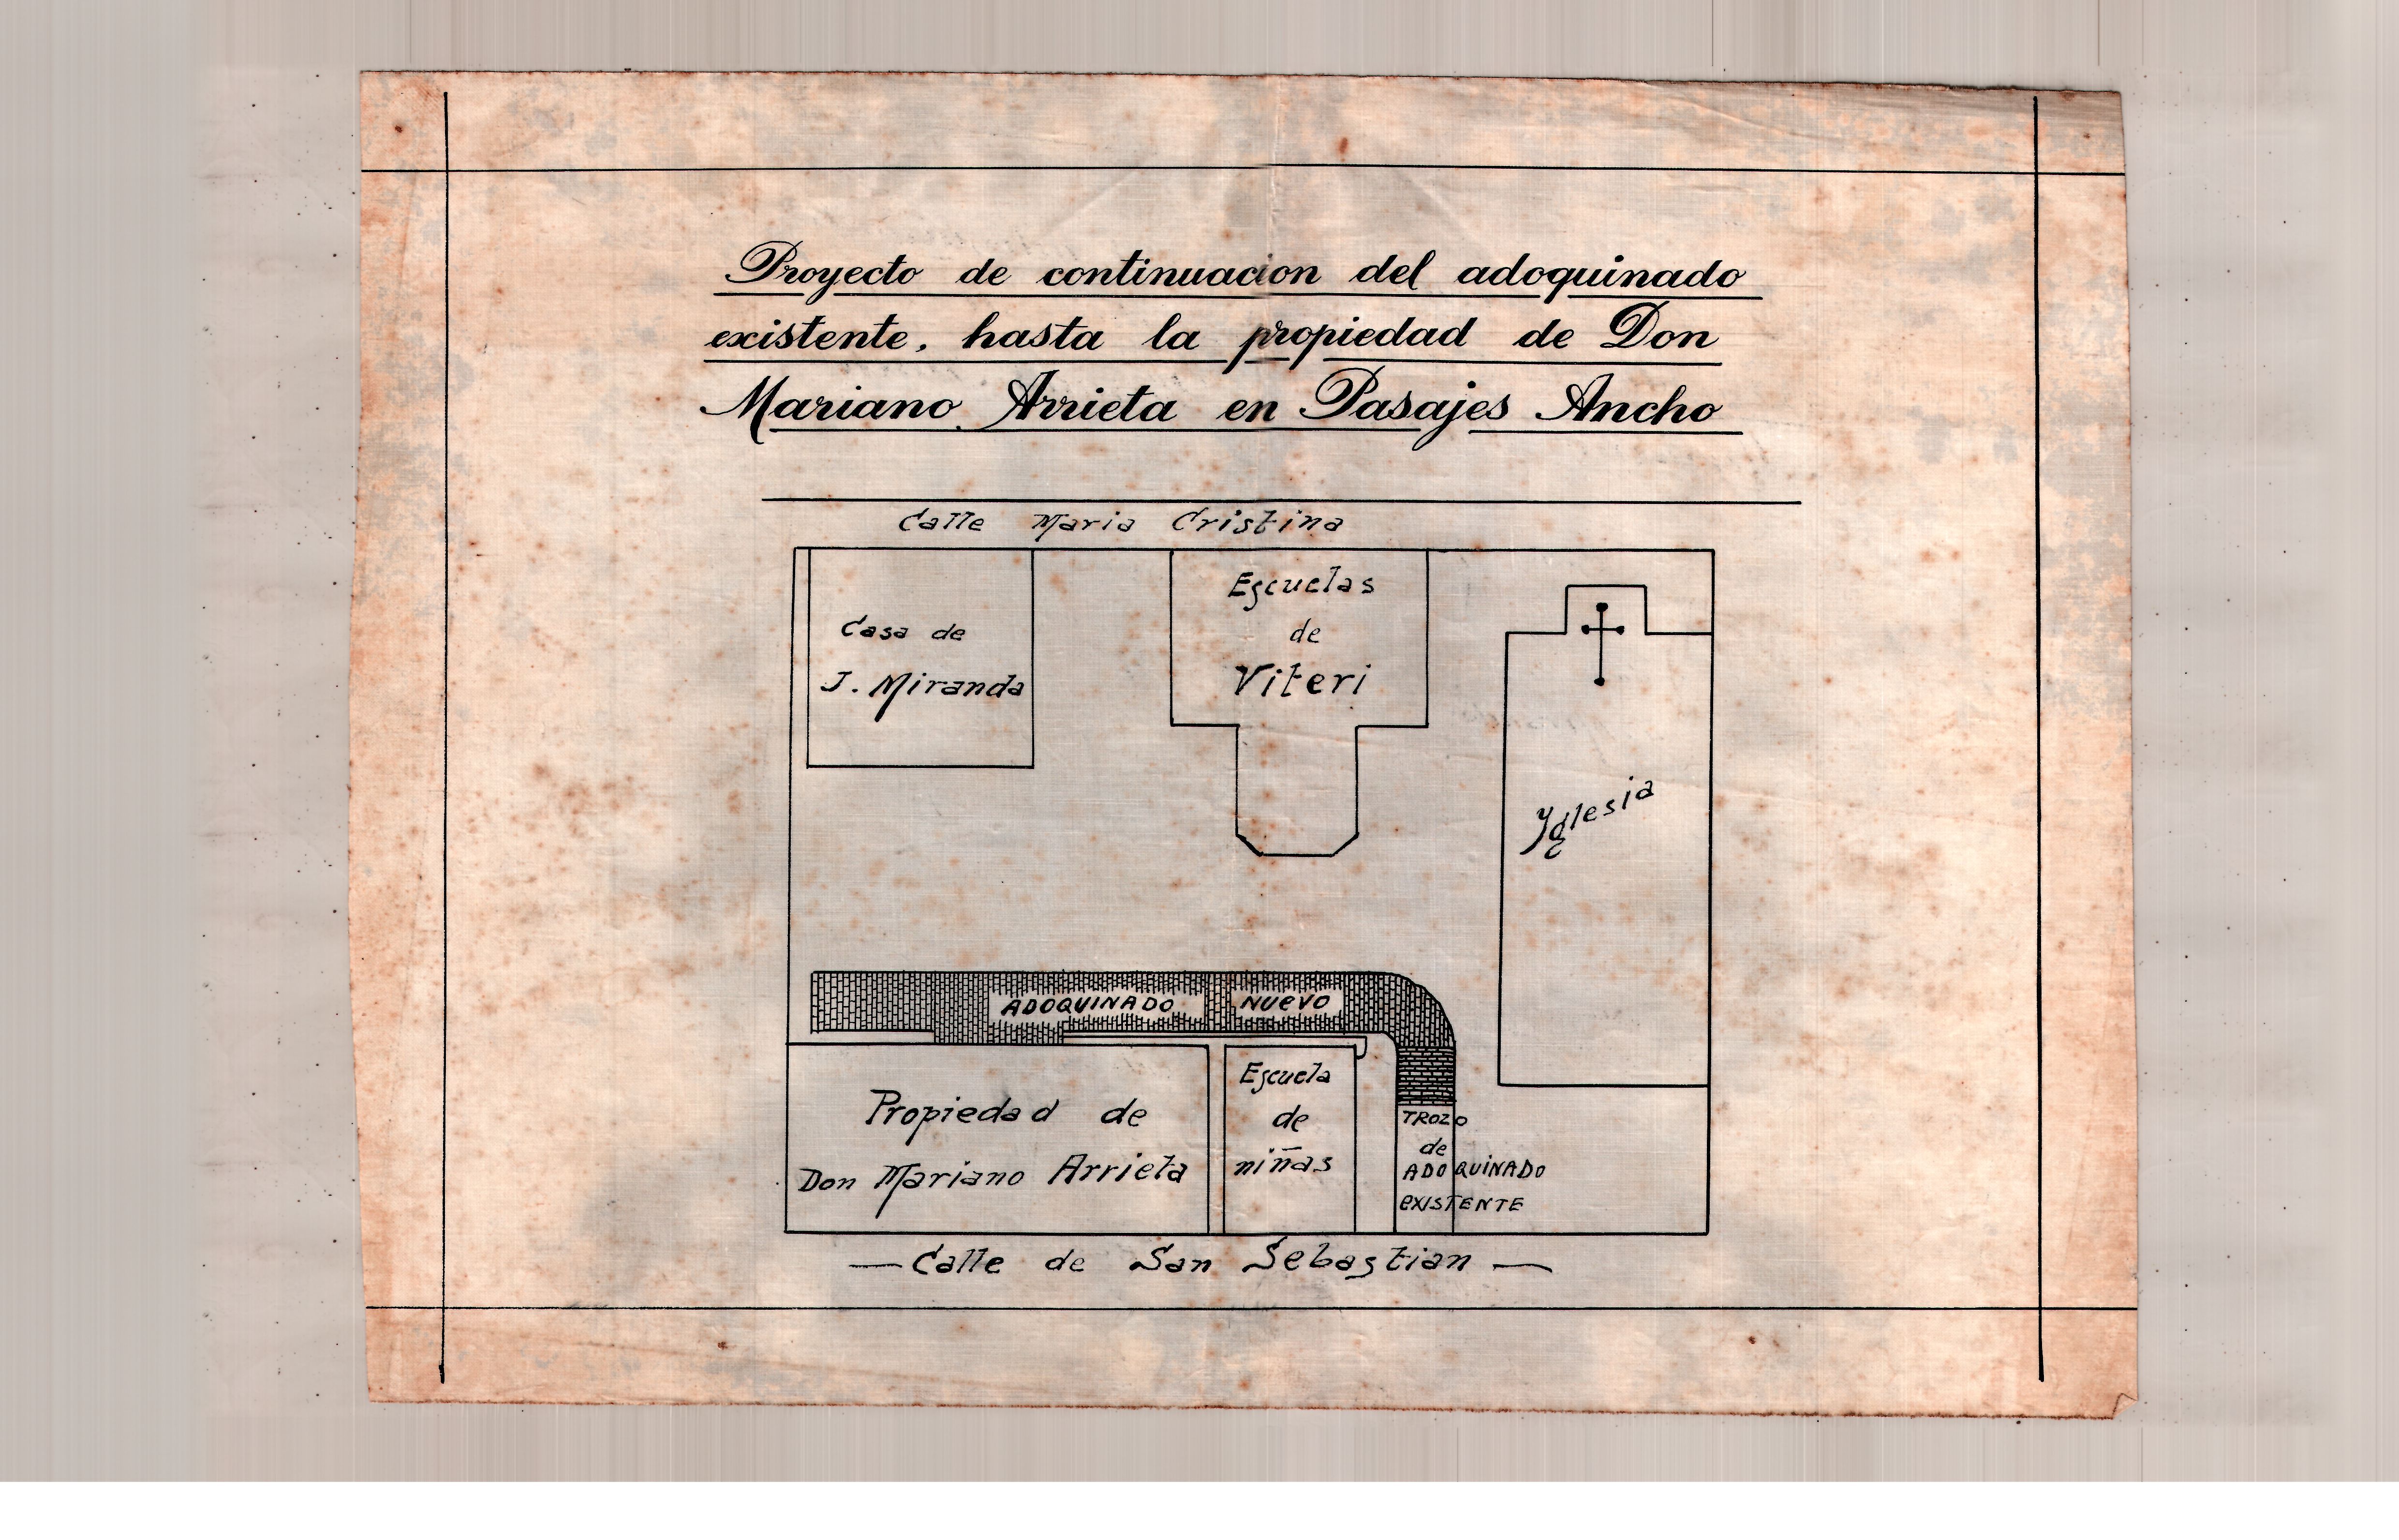 Proyecto de continuacion del adoquinado
existente, hasta la propiedad de Don
Mariano Arrieta en Pasajes Ancho
Calle Maria Cristina
Casa de
J. Miranda
Escuelas
de
Viteri
Yglesia
ADOQUINADO NUEVO
Propiedad de
Don Mariano Arrieta
Escuela
de
niñas
TROZO
de
ADOQUINADO
EXISTENTE
— Calle de San Sebastian —